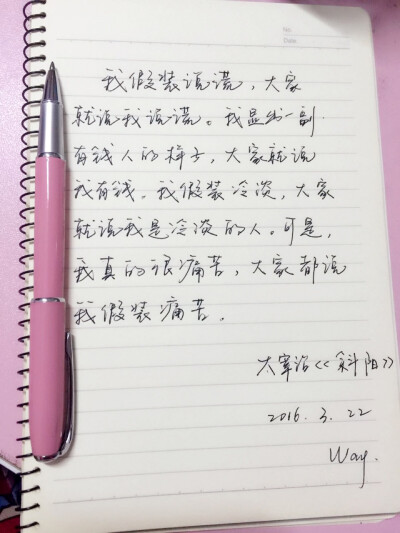 No.
Date.
我假装说谎，大家
就说我说谎。我显出一副
有钱人的样子，大家就说
我有钱。我假装冷淡，大家
就说我是冷淡的人。可是，
我真的很痛苦，大家都说
我假装痛苦。
太宰治《斜阳》
2016.3.22
Way.